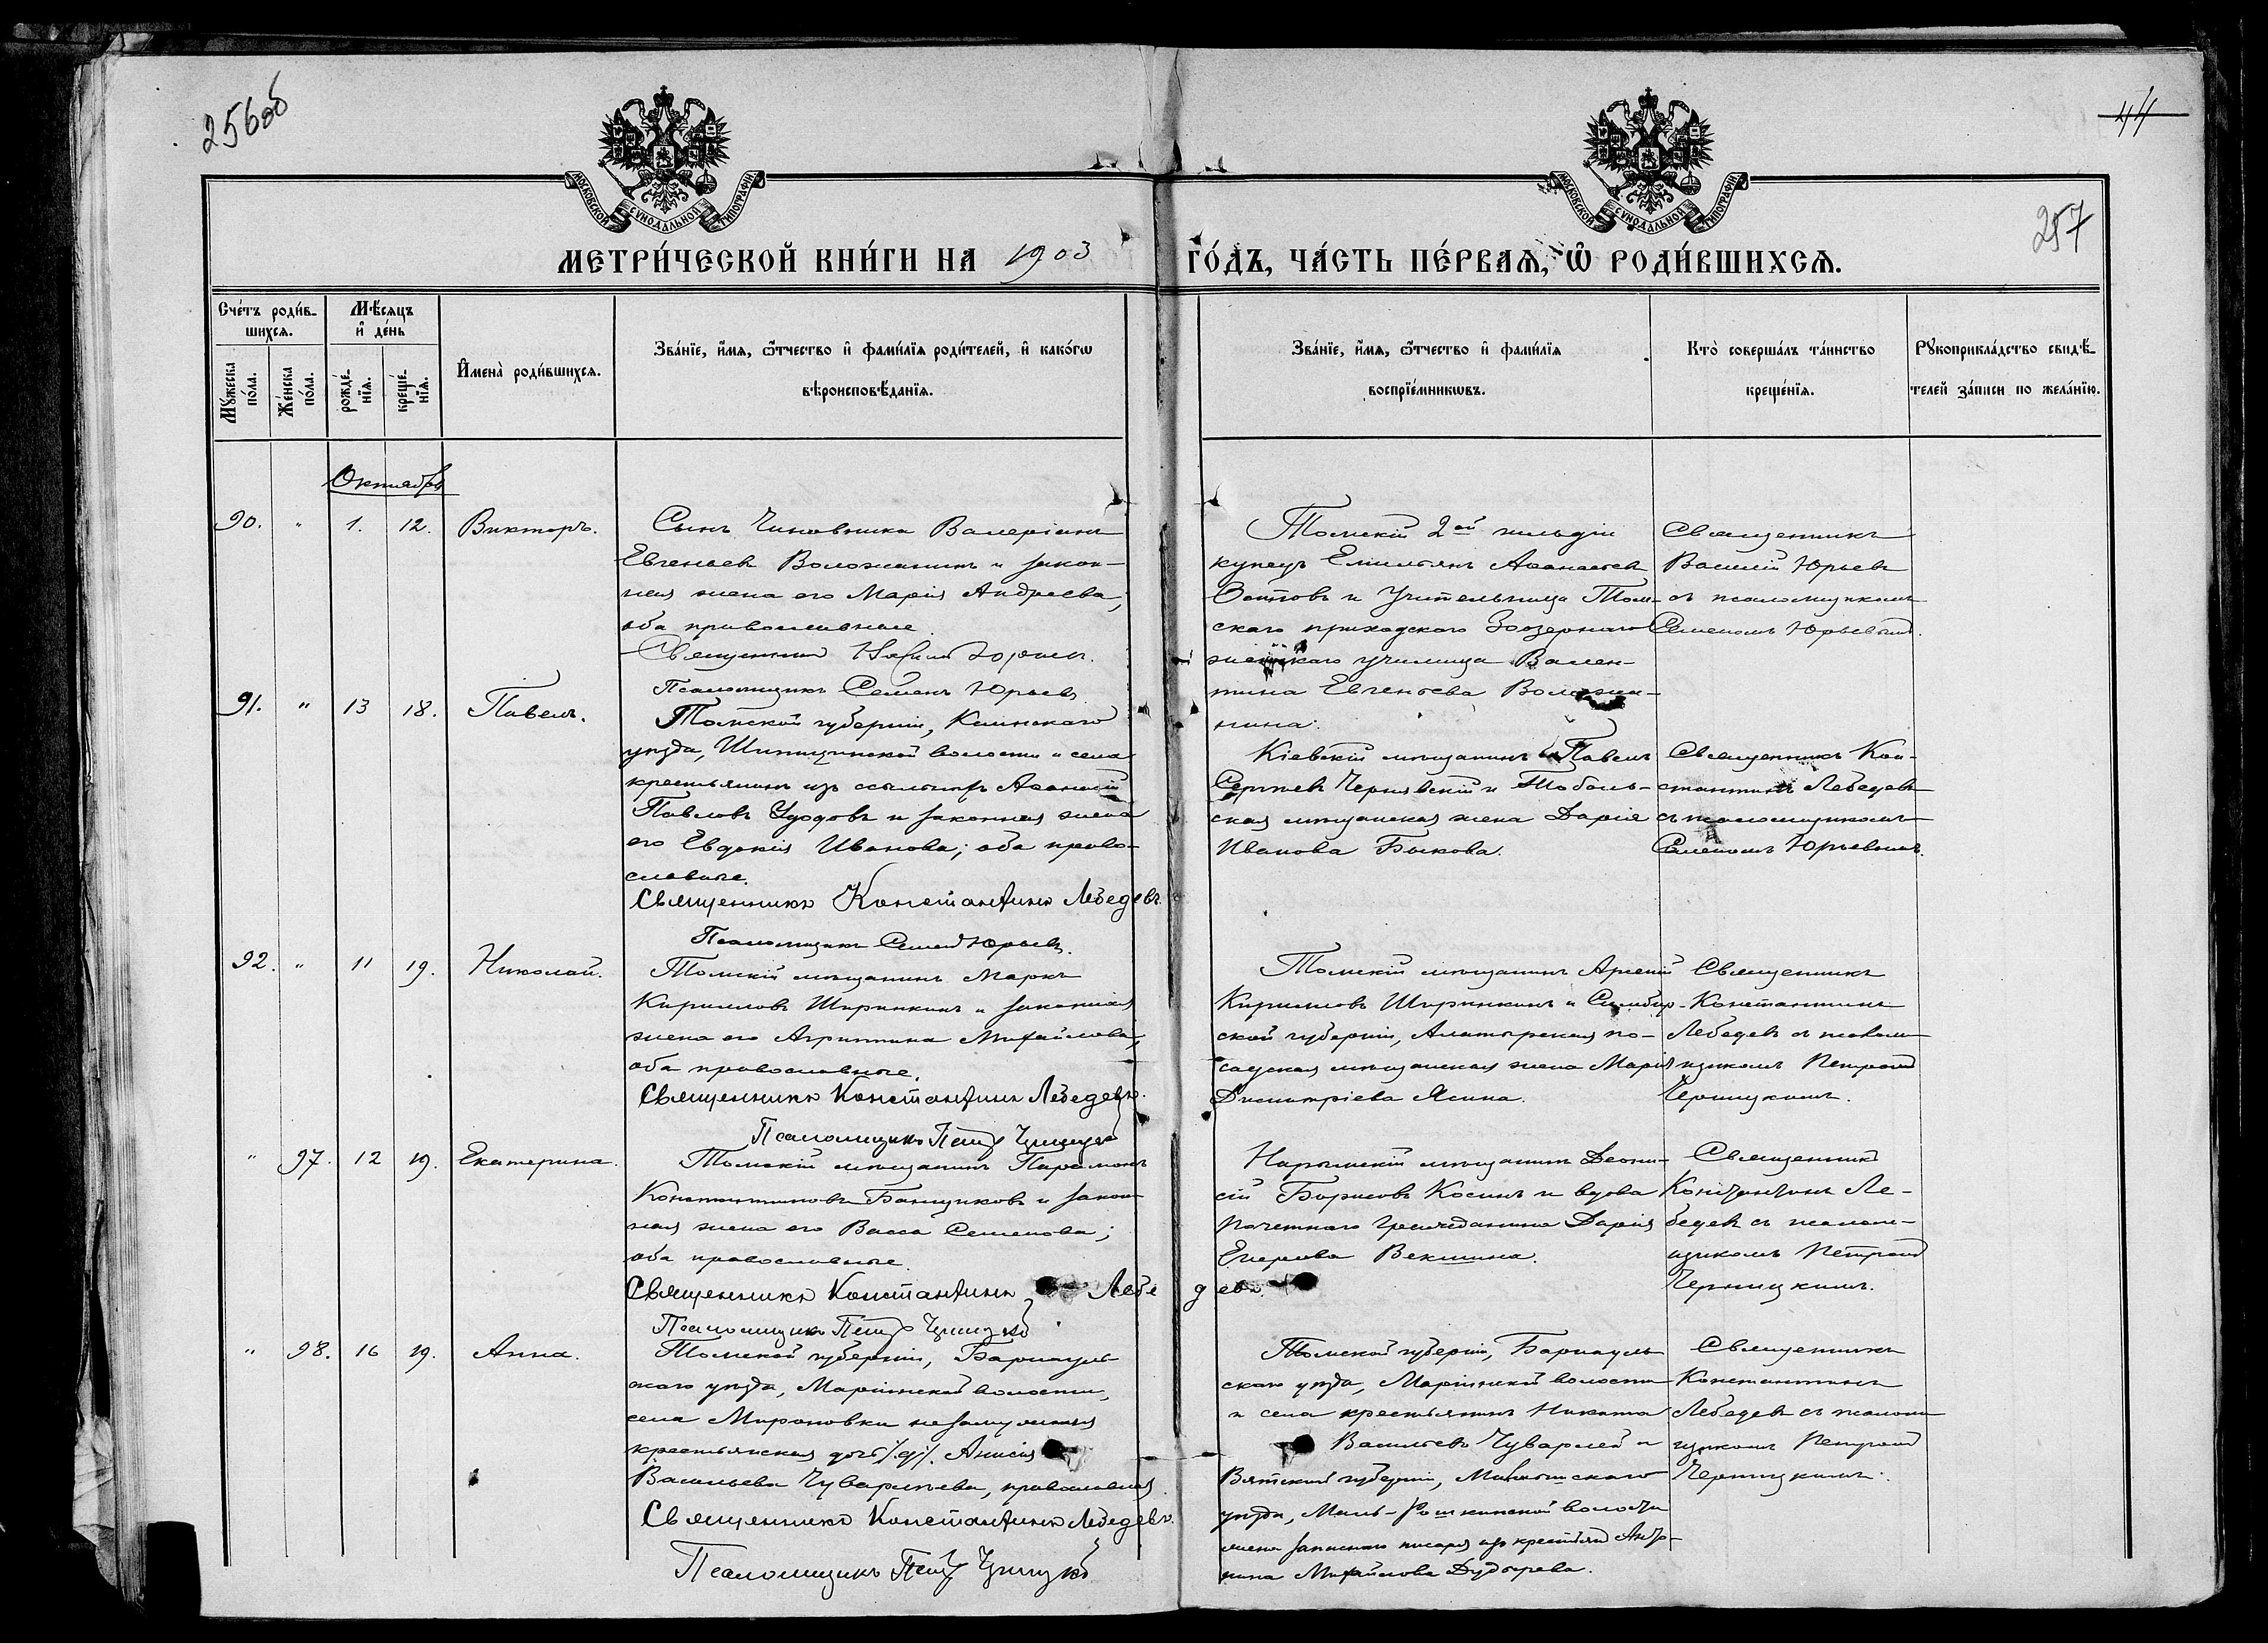 256об
44
257
МОСКОВСКОЙ СУНОДАЛЬНОЙ ТИПОГРАФІИ
МОСКОВСКОЙ СУНОДАЛЬНОЙ ТИПОГРАФІИ
МЕТРИ́ЧЕСКОЙ КНИ́ГИ НА 1903 ГО́ДЪ, ЧА́СТЬ ПЕ́РВАѦ, Ѡ҆ РОДИ́ВШИХСѦ.
Сче́тъ роди́в-
шихсѧ.
Мꙋ́жеска по́ла.
Же́нска по́ла.
Мѣ́сѧцъ и҆ де́нь
рожде́-нїѧ.
креще́-нїѧ.
И҆мена̀ роди́вшихсѧ.
Зва́нїе, и҆́мѧ, ѻ҆́тчество и҆ фамѝлїѧ роди́телей, и҆ како́гѡ
вѣроисповѣ́данїѧ.
Зва́нїе, и҆́мѧ, ѻ҆́тчество и҆ фами́лїѧ
воспрїе́мникѡвъ.
Кто̀ соверша́лъ та́инство
креще́нїѧ.
Рꙋкоприкла́дство свидѣ́-
телей за́писи по жела́нїю.
Октябрь
90. " 1. 12. Викторъ.
Сынъ Чиновника Валеріанъ
Евгеньевъ Воложанинъ и закон-
ная жена его Марія Андреева,
оба православные.
Священникъ Василій Юрьевъ.
Псаломщикъ Семенъ Юрьевъ
Томскій 2ой гильдіи
купецъ Емильянъ Аѳанасьевъ
и Учительница Том-
скаго приходского Заозернаго
женскаго училища Вален-
тина Евгеньева Воложа-
нина.
Священникъ
Василій Юрьевъ
съ псаломщикомъ
Семеномъ Юрьевымъ.
91. " 13 18. Павелъ.
Томской губерніи, Каинскаго
уѣзда, Шипицинской волости и села
крестьянинъ изъ ссыльныхъ Аѳанасій
Павловъ Удодовъ и законная жена
его Евдокія Иванова; оба право-
славные.
Священникъ Константинъ Лебедевъ.
Псаломщикъ Семенъ Юрьевъ.
Кіевскій мѣщанинъ Павелъ
Сергѣевъ Чернявскій и Тоболь-
ская мѣщанская жена Дарія
Иванова Быкова.
Священникъ Кон-
стантинъ Лебедевъ
съ псаломщикомъ
Семеномъ Юрьевымъ.
92. " 11 19. Николай.
Томскій мѣщанинъ Маркъ
Кирилловъ Ширинкинъ и законная
жена его Агриппина Михайлова,
оба православные.
Священникъ Константинъ Лебедевъ.
Псаломщикъ Петръ Черницкій
Томскій мѣщанинъ Арсеній
Кирилловъ Ширинкинъ и Симбир-
ской губерніи, Алатырская по-
садская мѣщанская жена Марія
Димитріева Ясина.
Священникъ
Константинъ
Лебедевъ съ псалом-
щикомъ Петромъ
Черницкимъ.
" 97. 12 19. Екатерина.
Томскій мѣщанинъ Парамонъ
Константиновъ Банщиковъ и закон-
ная жена его Васса Семенова;
оба православные.
Священникъ Константинъ Лебедевъ.
Псаломщикъ Петръ Черницкій
Нарымскій мѣщанинъ Діони-
сій Борисовъ Косинъ и вдова
почетнаго гражданина Дарія
Егорова Векшина.
Священникъ
Константинъ Ле-
бедевъ съ псалом-
щикомъ Петромъ
Черницкимъ.
" 98. 16 19. Анна.
Томской губерніи, Барнауль-
скаго уѣзда, Маріинской волости,
села Мироновки незамужняя
крестьянская дочь Анисія
Васильева Чувараева, православная.
Священникъ Константинъ Лебедевъ.
Псаломщикъ Петръ Черницкій
Томской губерніи, Барнауль-
скаго уѣзда, Маріинской волости
и села крестьянинъ Никита
Васильевъ и
Вятской губерніи,
уѣзда, волости
жена писаря изъ крестьянъ
Михайлова Дудырева.
Священникъ
Константинъ
Лебедевъ съ псалом-
щикомъ Петромъ
Черницкимъ.